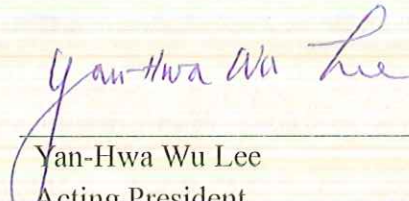 Yan-Hwa Wu Lee
Yan-Hwa Wu Lee
Acting President